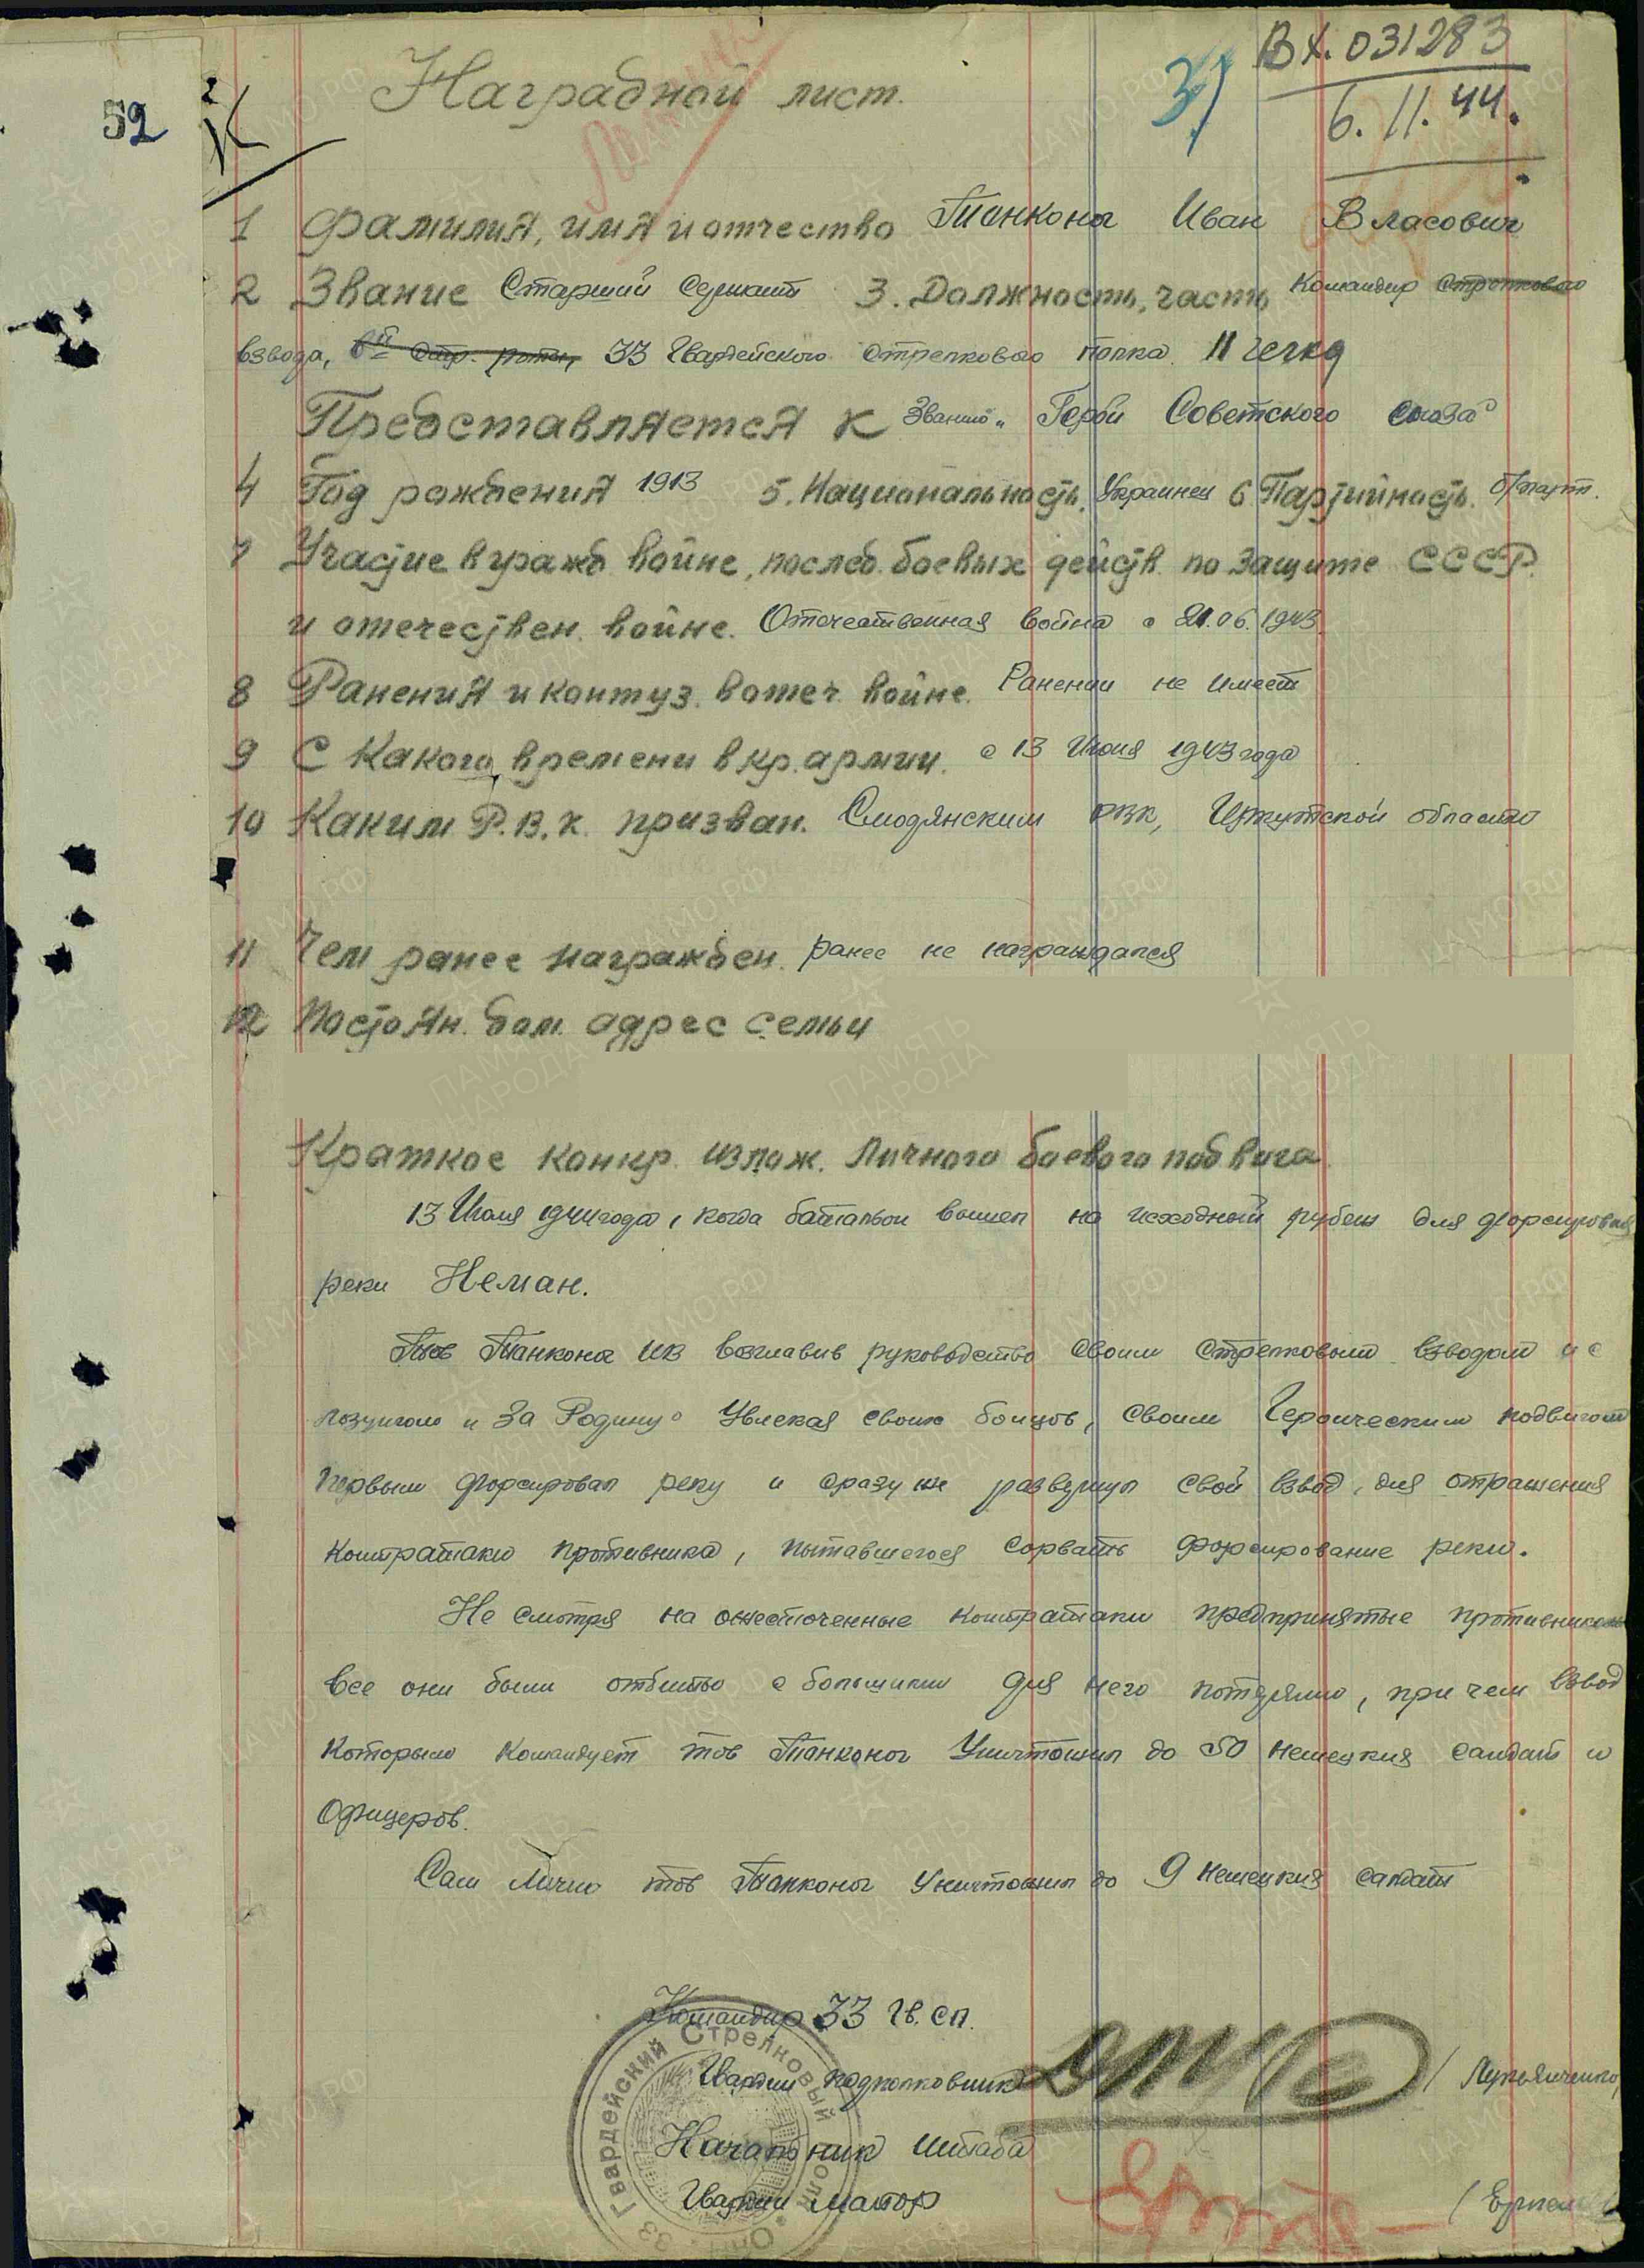 Вх. 031283
Наградной лист.
37
6.11.44.
52
1 Фамилия, имя и отчество Танконог Иван Власович
2 Звание Старший Сержант 3. Должность, часть Командир Стрелкового
взвода, 6й Стр. роты, 33 Гвардейского Стрелкового полка
Представляется к Званию „Герой Советского Союза"
4 Год рождения 1913 5. Национальность. Украинец 6 Партийность. б/парт.
7 Участие в гражд. войне, послед. боевых действ. по защите СССР.
и отечествен. войне. Отечественная война с 21.06.1943.
8 Ранения и контуз. в отеч. войне. Ранении не имеет
9 С какого времени в кр. армии. с 13 Июня 1943 года
10 Каким Р.В.К. призван. РВК, Иркутской области
11 Чем ранее награжден. ранее не награждался
12 Постоян. дом. адрес семьи
Краткое конкр. излож. личного боевого подвига.
13 Июля 1944 года, когда батальон вышел на исходный рубеж для форсирования
реки Неман.
Тов Танконог ИВ возглавив руководство своим стрелковым взводом и с
лозунгом „За Родину" Увлекая своих бойцов, своим Героическим подвигом
первым форсировал реку и сразу же развернул свой взвод, для отражения
контратаки противника, пытавшегося сорвать форсирование реки.
Не смотря на ожесточенные контратаки предпринятые противником
все они были отбиты с большими для него потерями, при чем взвод
которым командует тов Танконог Уничтожил до 50 немецких салдат и
Офицеров.
Сам Лично тов Танконог Уничтожил до 9 немецких салдат
Командир 33 Гв. сп.
Гвардии подполковник / Лукьянченко/
Начальник штаба
Гвардии майор
33 Гвардейский Стрелковый полк